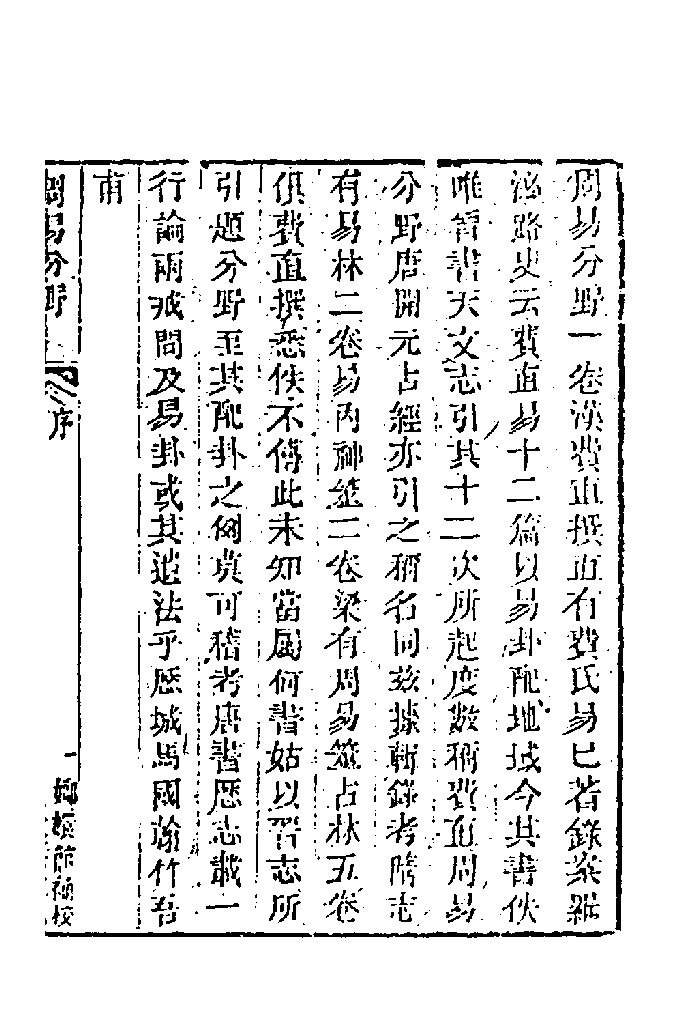 周易分野一卷漢費直撰直有費氏易已著錄案羅
泌路史云費直易十二篇以易卦配地域今其書佚
唯晉書天文志引其十二次所起度數稱費直周易
分野唐開元占經亦引之稱名同玆據輯錄考隋志
有易林二卷易內神筮二卷梁有周易筮占林五卷
俱費直撰悉佚不傳此未知當屬何書姑以晉志所
引題分野至其配卦之例莫可稽考唐書歷志載一
行論兩戒問及易卦或其遺法乎歷城馬國翰竹吾
甫
周易分野 序 一 嫏嬛館補校